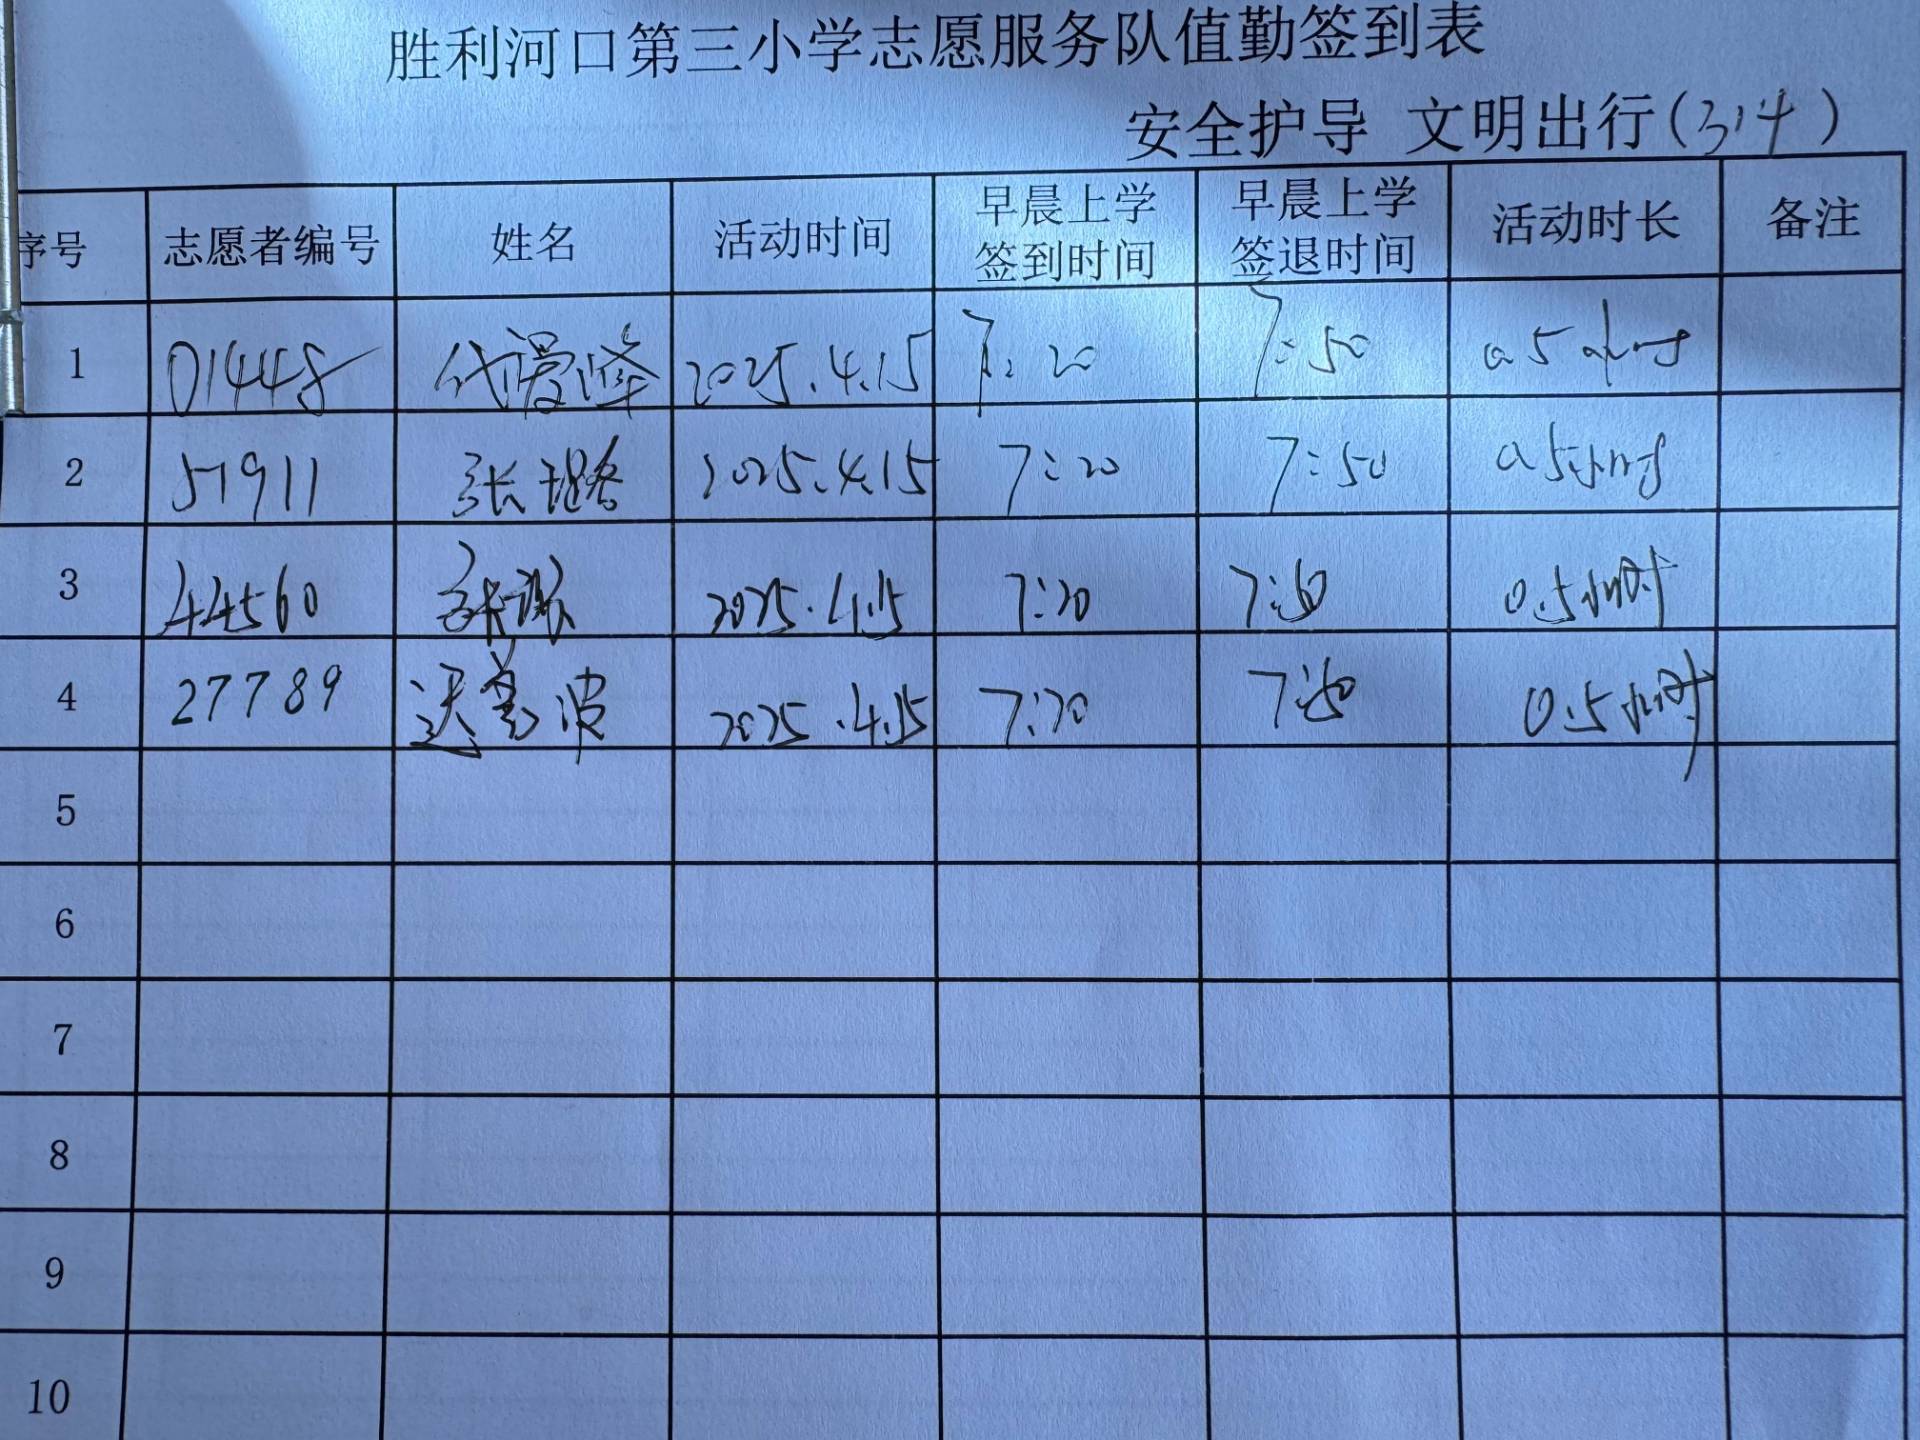 胜利河口第三小学志愿服务队值勤签到表
安全护导 文明出行(314)
序号 志愿者编号 姓名 活动时间 早晨上学签到时间 早晨上学签退时间 活动时长 备注
1 01448 代爱泽 2025.4.15 7:20 7:50 0.5小时
2 51911 张璐 2025.4.15 7:20 7:50 0.5小时
3 44560 2025.4.15 7:20 7:50 0.5小时
4 27789 波 2025.4.15 7:20 7:50 0.5小时
5
6
7
8
9
10